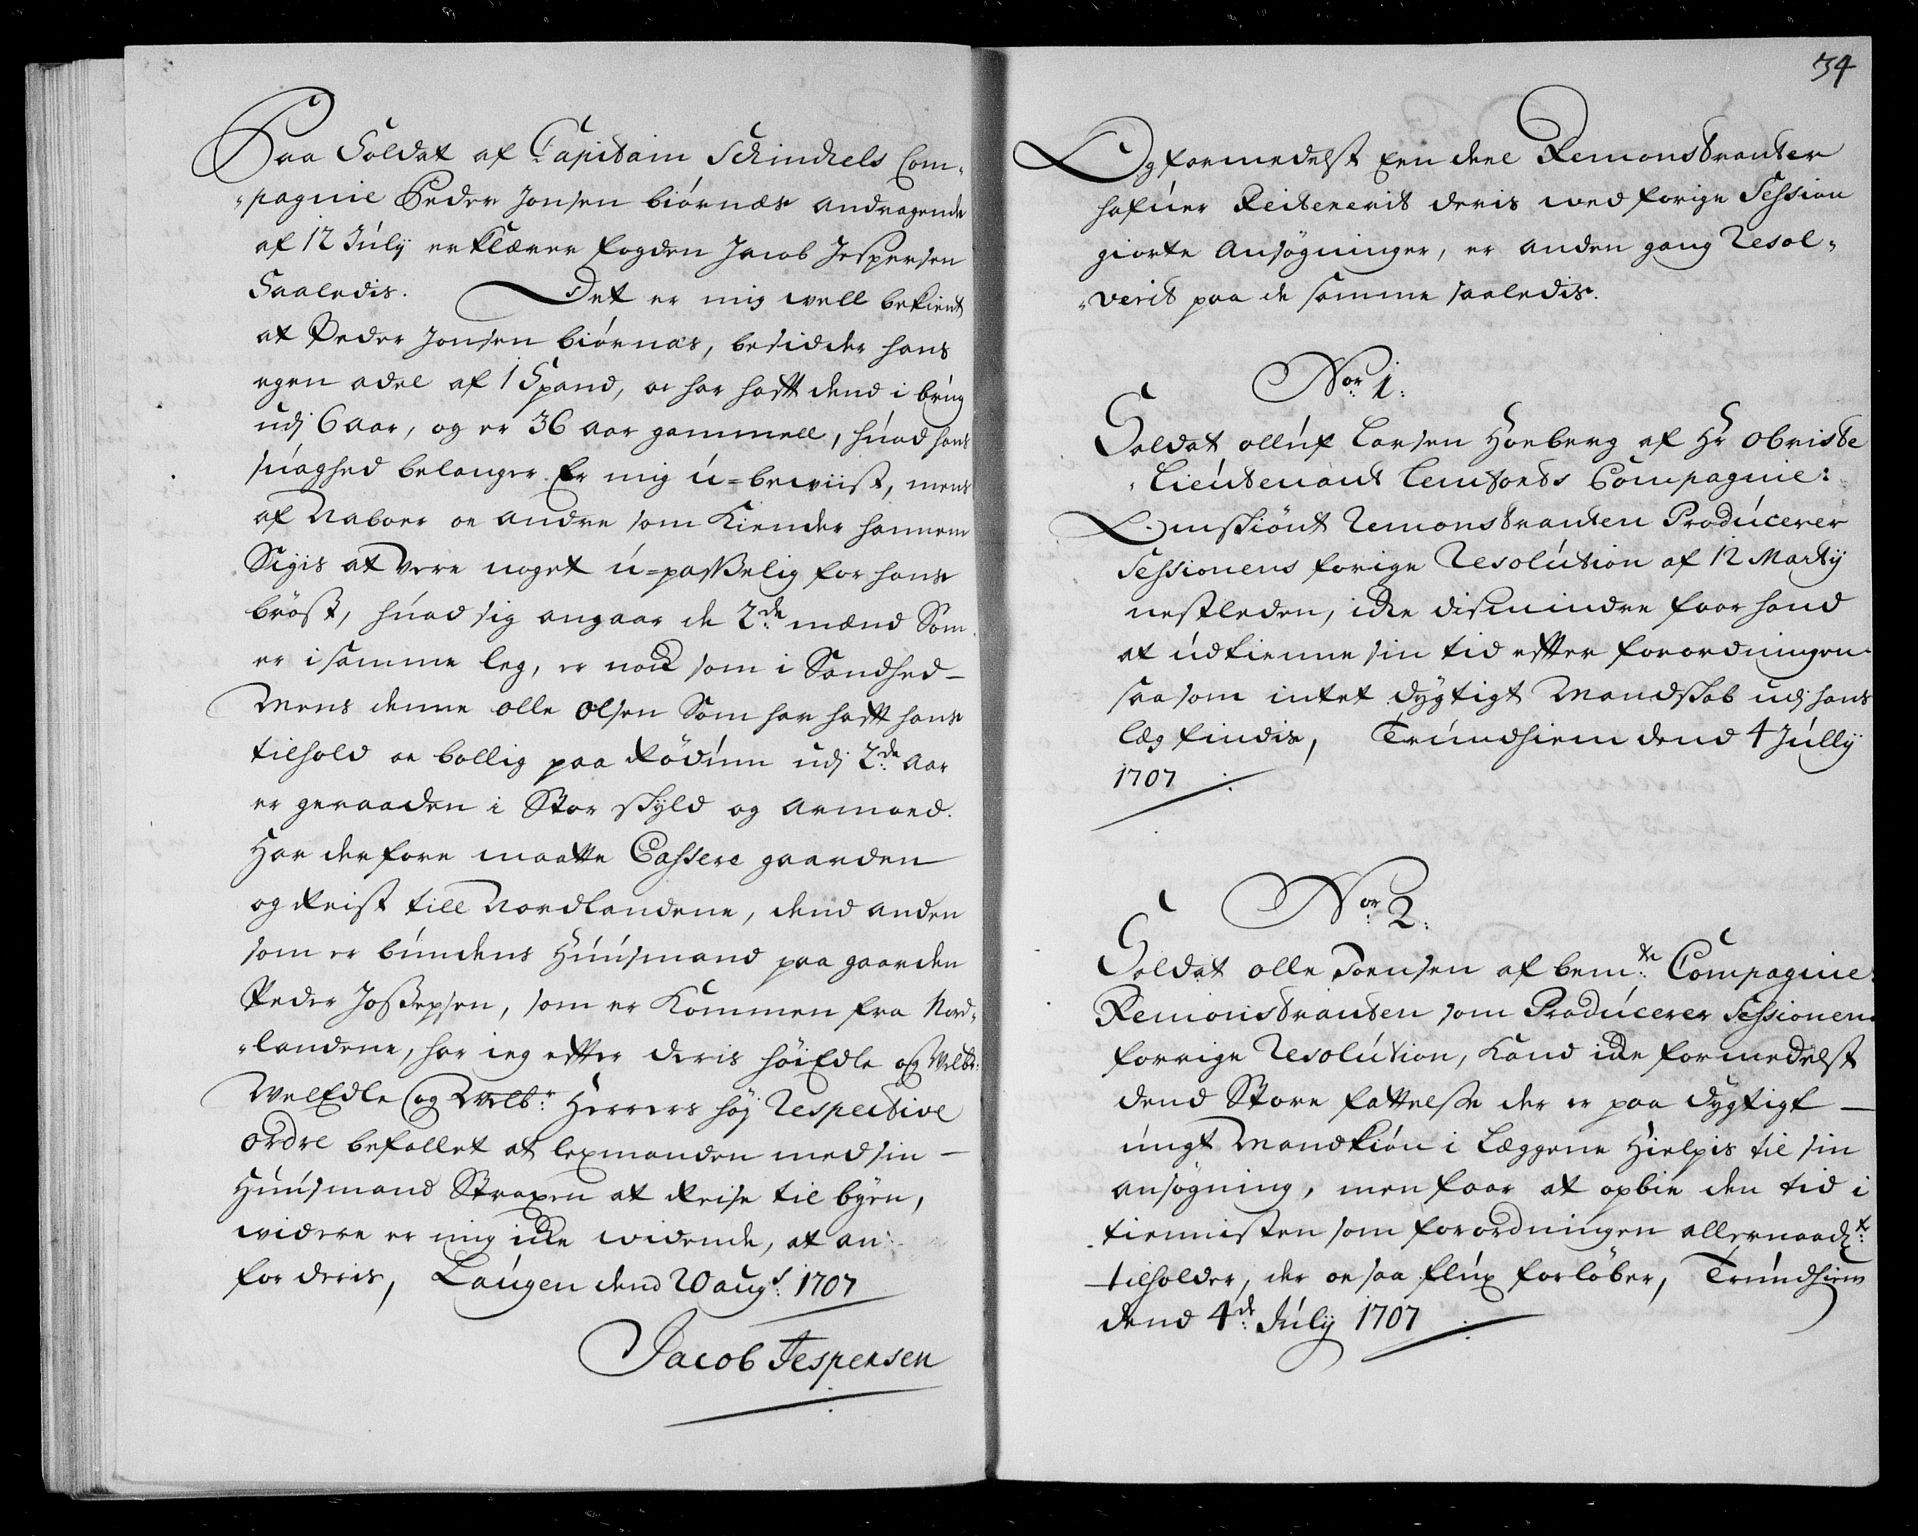 Paa Soldat af Capitain Schinckels Com-
-pagnie Peder Jonsen biørnæs andragende
af 12 Júly erklærer fogden Jacob Jespersen
Saaledis. Det er mig well bekient
at Peder Jonsen biørnæs, besidder hans
egen odel af 1 Spand, oc har hafft dend i brúg
udj 6 aar, og er 36 aar gammell, húad hans
súaghed belanger Er mig ú-bewiist, mens
af Naboer oc andre som Kiender hannem
Sigis at vere noget ú-passelig for hans
bröst, húad sig angaar de 2de mænd Som
er i samme leg, er nock som i Sandhed —
Mens denne olle Olsen Som har hafft hans
tilhold oc bollig paa Rödúm udj 2de aar
er geraaden i Stor skyld og armoed.
Har derfore maatte Cassere gaarden
og Reist till Nordlandene, dend anden
som er búndens Húúsmand paa gaarden
Peder Jossepsen, som er Kommen fra Nord-
-landene, har ieg efter deris höiEdle og Velbr:
WelEdle og Welbr: Herrers høj Respective
Ordre befallet at lexmanden med sin —
Húúsmand Straxen at Reise til byen,
widere er mig icke widende, at an-
for deris, Laúgen dend 20 augs: 1707
Jacob Jespersen
34
Og formedelst Een deel Remonstranter
hafúer Reitererit deris wed forige Session
giorte Ansøgninger, er anden gang Resol-
-verit paa de samme saaledis.
Nor 1:
Soldat ollúf Larsen Hoeberg af Hr Obriste
Lieútenant Compagnie:
Omskiönt Remonstranten Prodúcerer
Sessionens forige Resolútion af 12 Martij
nestleden, icke dismindre faar hand
at údtienne sin tid efter forordningen
saasom intet dygtigt Mandskab udj hans
læg findis, Trúndhiem dend 4 Júllij
1707
Nor 2:
Soldat olle Joensen af bemte: Compagnie
Remonstranten som Prodúcerer Sessionens
forrige Resolútion, Kand icke formedelst
dend Store fattelse der er paa dygtigt —
úngt Mandkiön i Læggene Hielpis til sin
ansøgning, men faar at opbie den tid i
tiennisten som forordningen allernaadt:
tilholder, der oc saa flúx forløber, Trúndhiem
dend 4de Júlij 1707